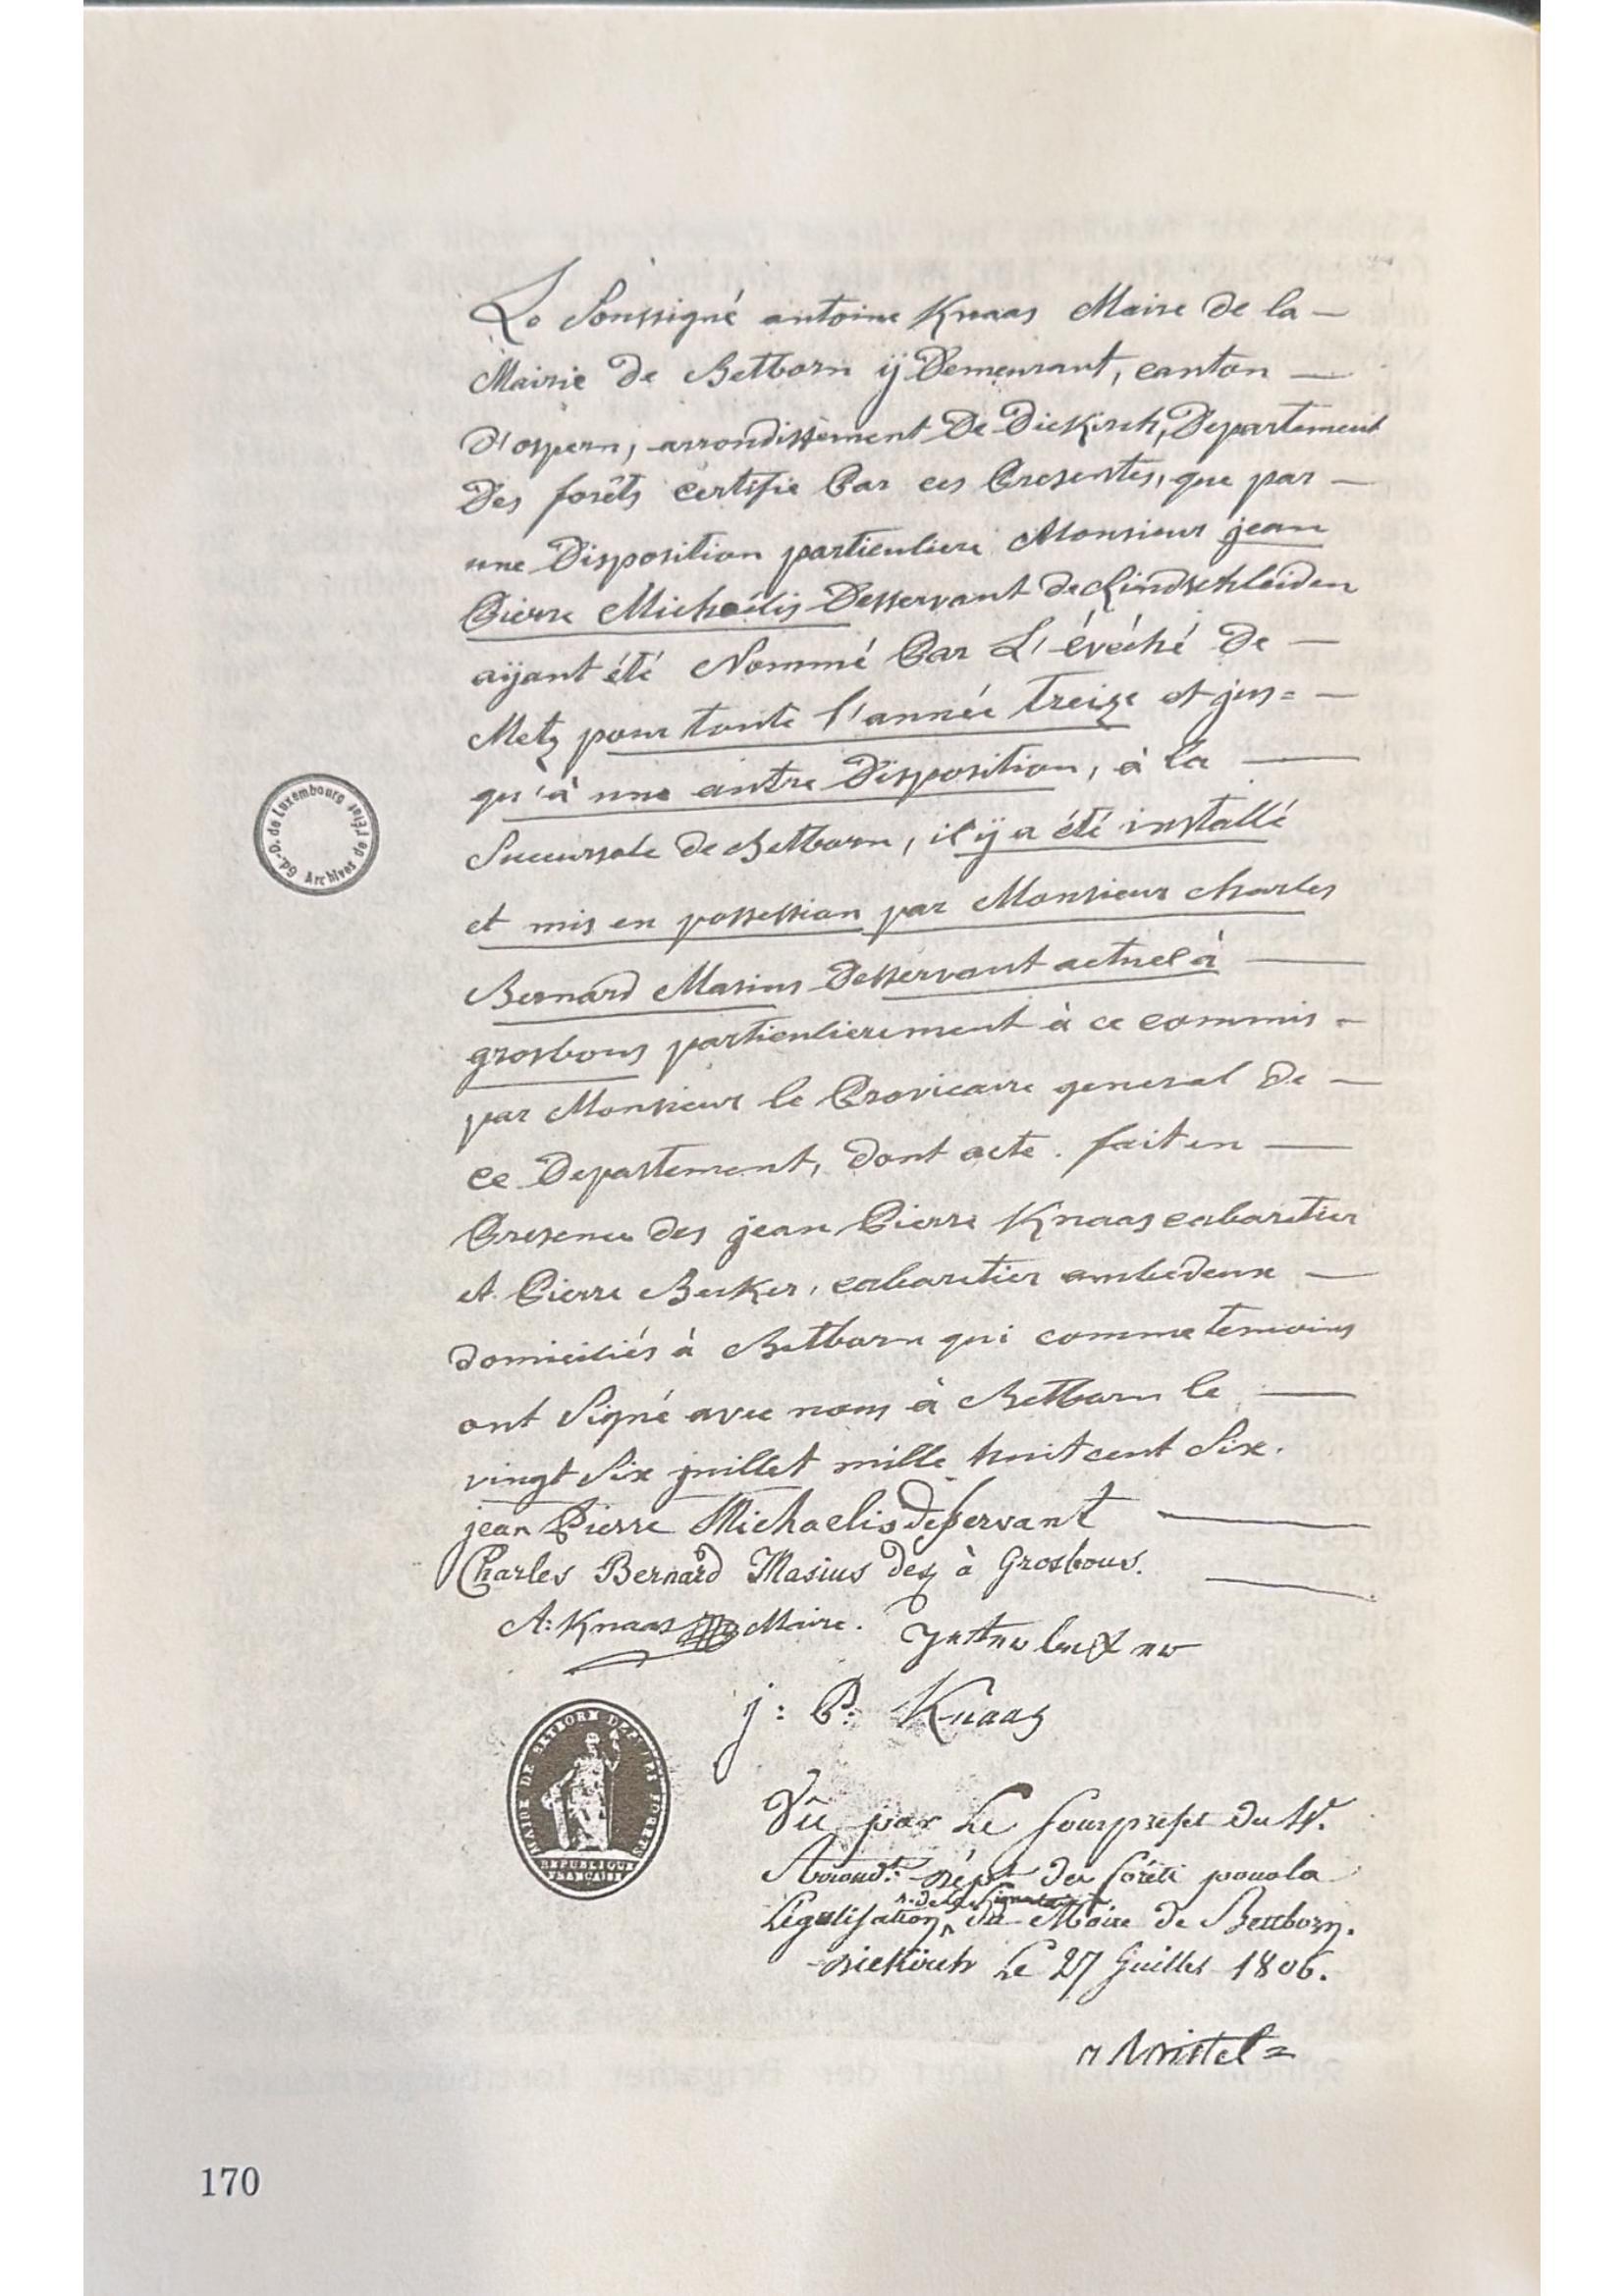 Le Soussigné antoine Knaas Maire de la —
Mairie de Bettborn ÿ Demeurant, canton —
d'ospern, arrondissement De Diekirch, Departement
Des forêts certifie Par ces Presentes, que par —
une Disposition particuliere Monsieur jean
Pierre Michaëlis Desservant de Rindschleiden
aÿant été Nommé Par L'évéché de —
Metz pour toute l'année treize et jus= —
qu'à une autre Disposition, à la —
Succursale de Bettborn, il ÿ a été installé
et mis en possession par Monsieur charles
Bernard Masius Desservant actuel à —
grosbous particulierement à ce commis -
par Monsieur le Provicaire general de —
ce Departement, dont acte. fait en —
Presence des jean Pierre Knaas cabaretier
et Pierre Becker, cabaretier ambedeux —
domiciliés à Bettborn qui comme temoins
ont Signé avec nous à Bettborn le —
vingt Six juillet mille huit cent Six.
jean Pierre Michaelis desservant —
Charles Bernard Masius des à Grosbous. —
A: Knaas Maire.
j: P: Knaas
MAIRIE DE BETBORN DEP. DES FORETS
REPUBLIQUE
FRANCAISE
Vû par Le sousprefet du
Arrond.t Dép.t des forêts pour la
Legalisation de la Signature du Maire de Bettborn.
Diekirch Le 27 Juillet 1806.
Gd.-D. de Luxembourg
Archives de l'État
170